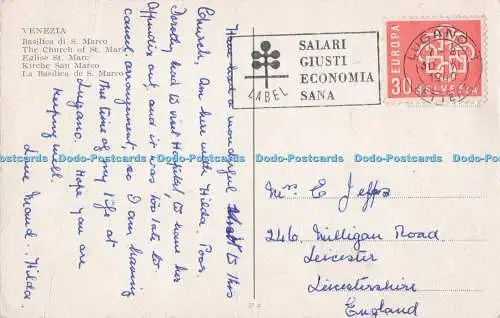 VENEZIA
Basilica di S. Marco
The Church of St. Mark
Eglise St. Marc
Kirche San Marco
La Basilica de S. Marco
Have had a wonderful
to this
Church. Am here with Hilda. Poor
Dorothy had to visit Hospital, to have her
Appendix out, and it was too late to
cancel arrangements, so I am having
the time of my life at
Lugano. Hope you are
keeping well.
Love Maud. Hilda
LABEL
SALARI
GIUSTI
ECONOMIA
SANA
LUGANO
1960
EUROPA
30
HELVETIA
Mrs C Jeffs
246 Milligan Road
Leicester
Leicestershire
England
www.Postcards-World.com